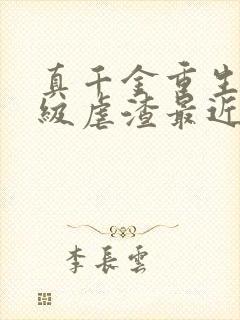 真千金重生
級虐渣最近
李長雲